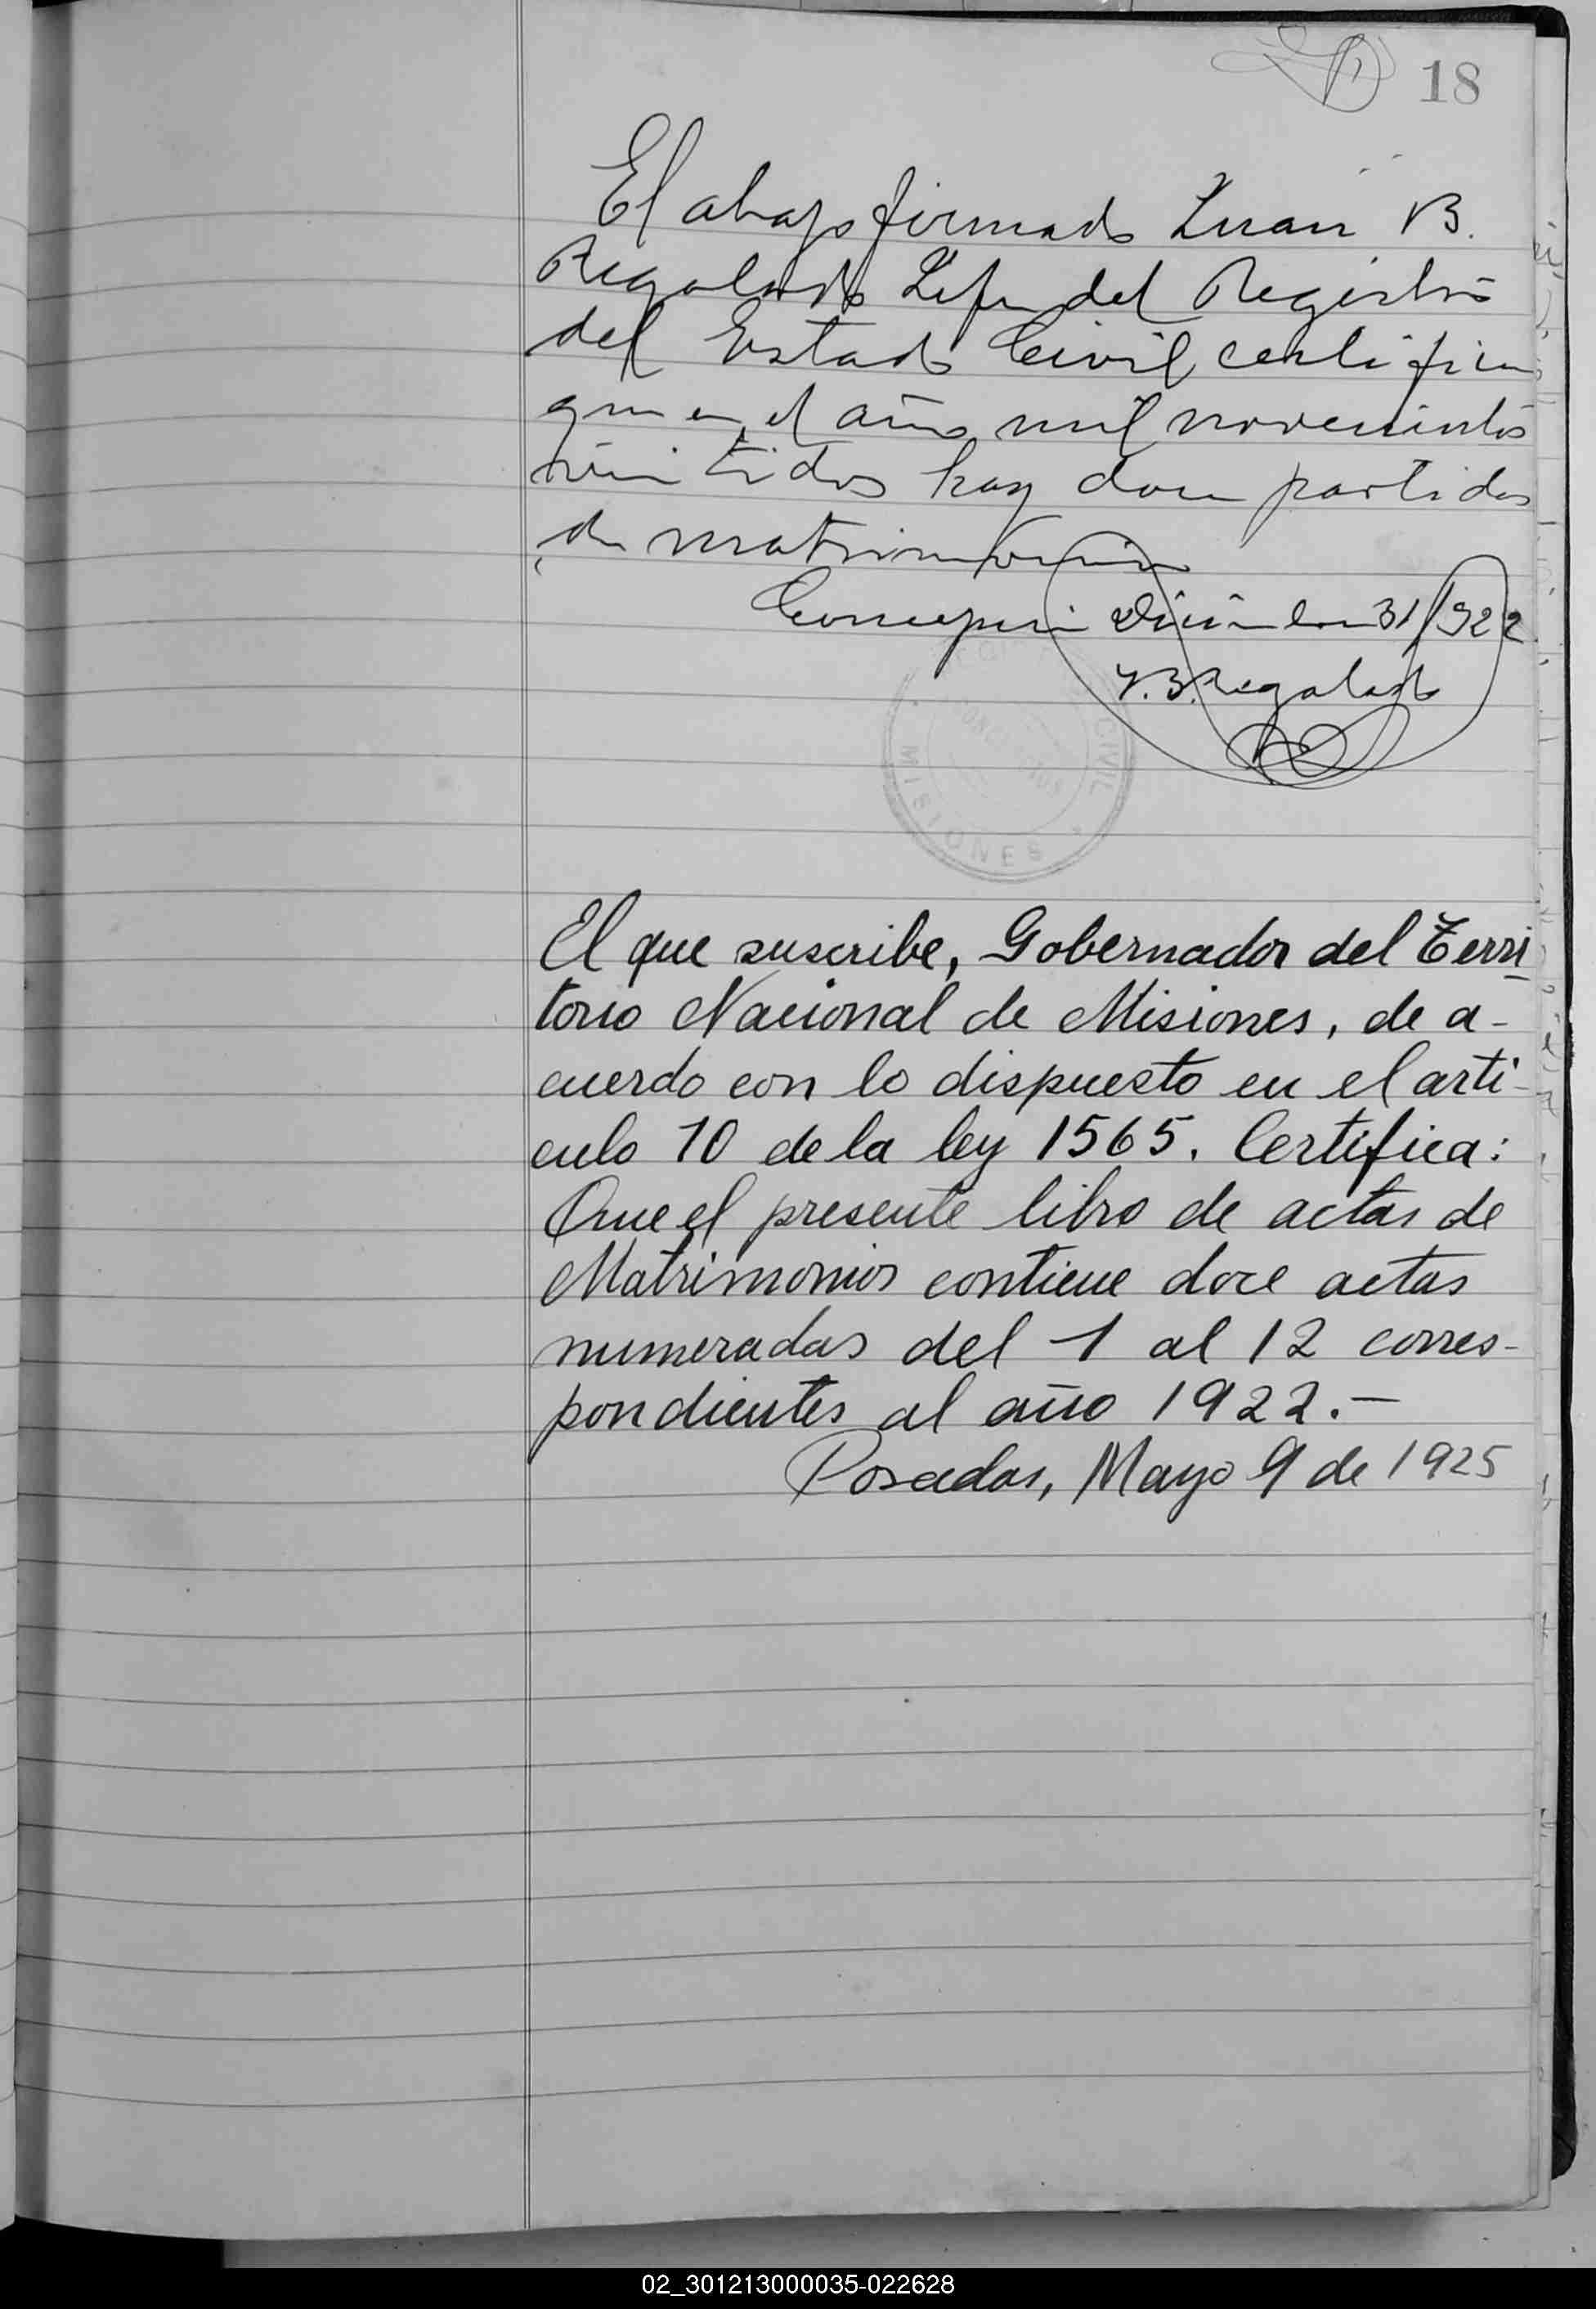 18
El abajo firmado Juan B.
Regalado Jefe del Registro
del Estado Civil certifica
que en el año mil novecientos
veintidos hay doce partidas
de matrimonio
Concepción Diciembre 31/922
J. B. Regalado
CIVIL
MISIONES
El que suscribe, Gobernador del Terri
torio Nacional de Misiones, de a-
cuerdo con lo dispuesto en el arti-
culo 10 de la ley 1565. Certifica:
Que el presente libro de actas de
Matrimonios contiene doce actas
numeradas del 1 al 12 corres-
pondientes al año 1922.-
Posadas, Mayo 9 de 1925
02_301213000035-022628